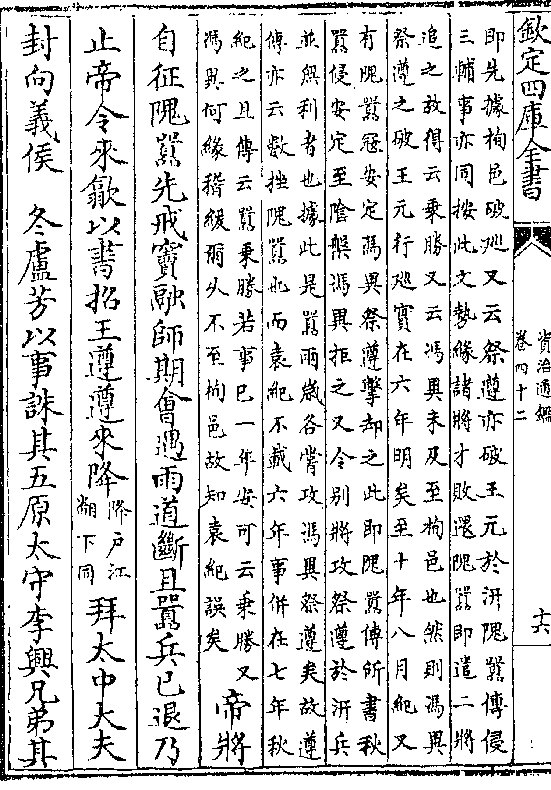 欽定四庫全書
資治通鑑
卷四十二
十六
即先據栒邑破巡又云祭遵亦破王元於汧隗囂傳侵
三輔事亦同按此文勢緣諸將才敗還隗囂即遣二將
追之故得云乗勝又云馮異未及至栒邑也然則馮異
祭遵之破王元行巡實在六年明矣至十年八月紀又
有隗囂寇安定馮異祭遵擊却之此即隗囂傳所書秋
囂侵安定至隂槃馮異拒之又令别將攻祭遵於汧兵
並無利者也據此是囂兩歲各嘗攻馮異祭遵矣故遵
傳亦云數挫隗囂也而袁紀不載六年事併在七年秋
紀之且傳云囂乗勝若事已一年安可云乗勝又
馮異何緣稽緩爾乆不至栒邑故知袁紀誤矣
帝將
自征隗囂先戒竇融師期會遇雨道斷且囂兵已退乃
止帝令來歙以書招王遵遵來降
降户江
翻下同
拜太中大夫
封向義侯　冬盧芳以事誅其五原太守李興兄弟其